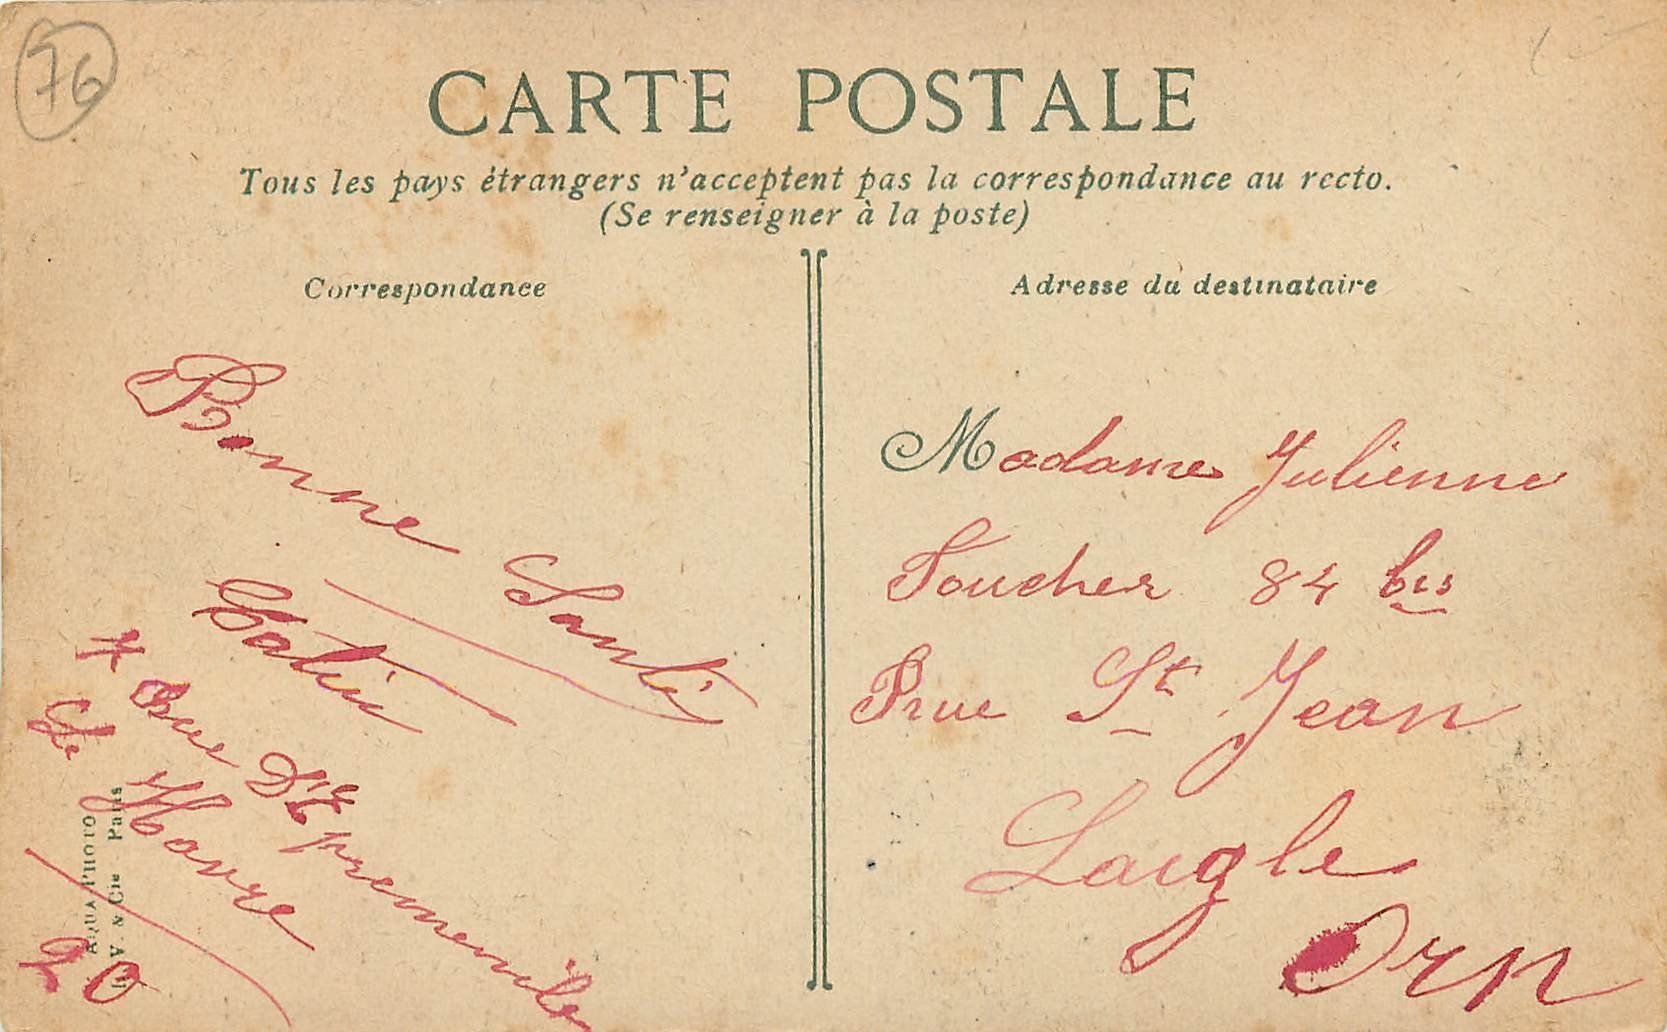 76
CARTE POSTALE
Tous les pays étrangers n'acceptent pas la correspondance au recto.
(Se renseigner à la poste)
Correspondance
Bonne Santé
7 Rue
Le Havre
20
AQUA PHOTO
L. V. & Cie Paris
Adresse du destinataire
Madame Julienne
Foucher 84 bis
Rrue St Jean
Laigle
Orn